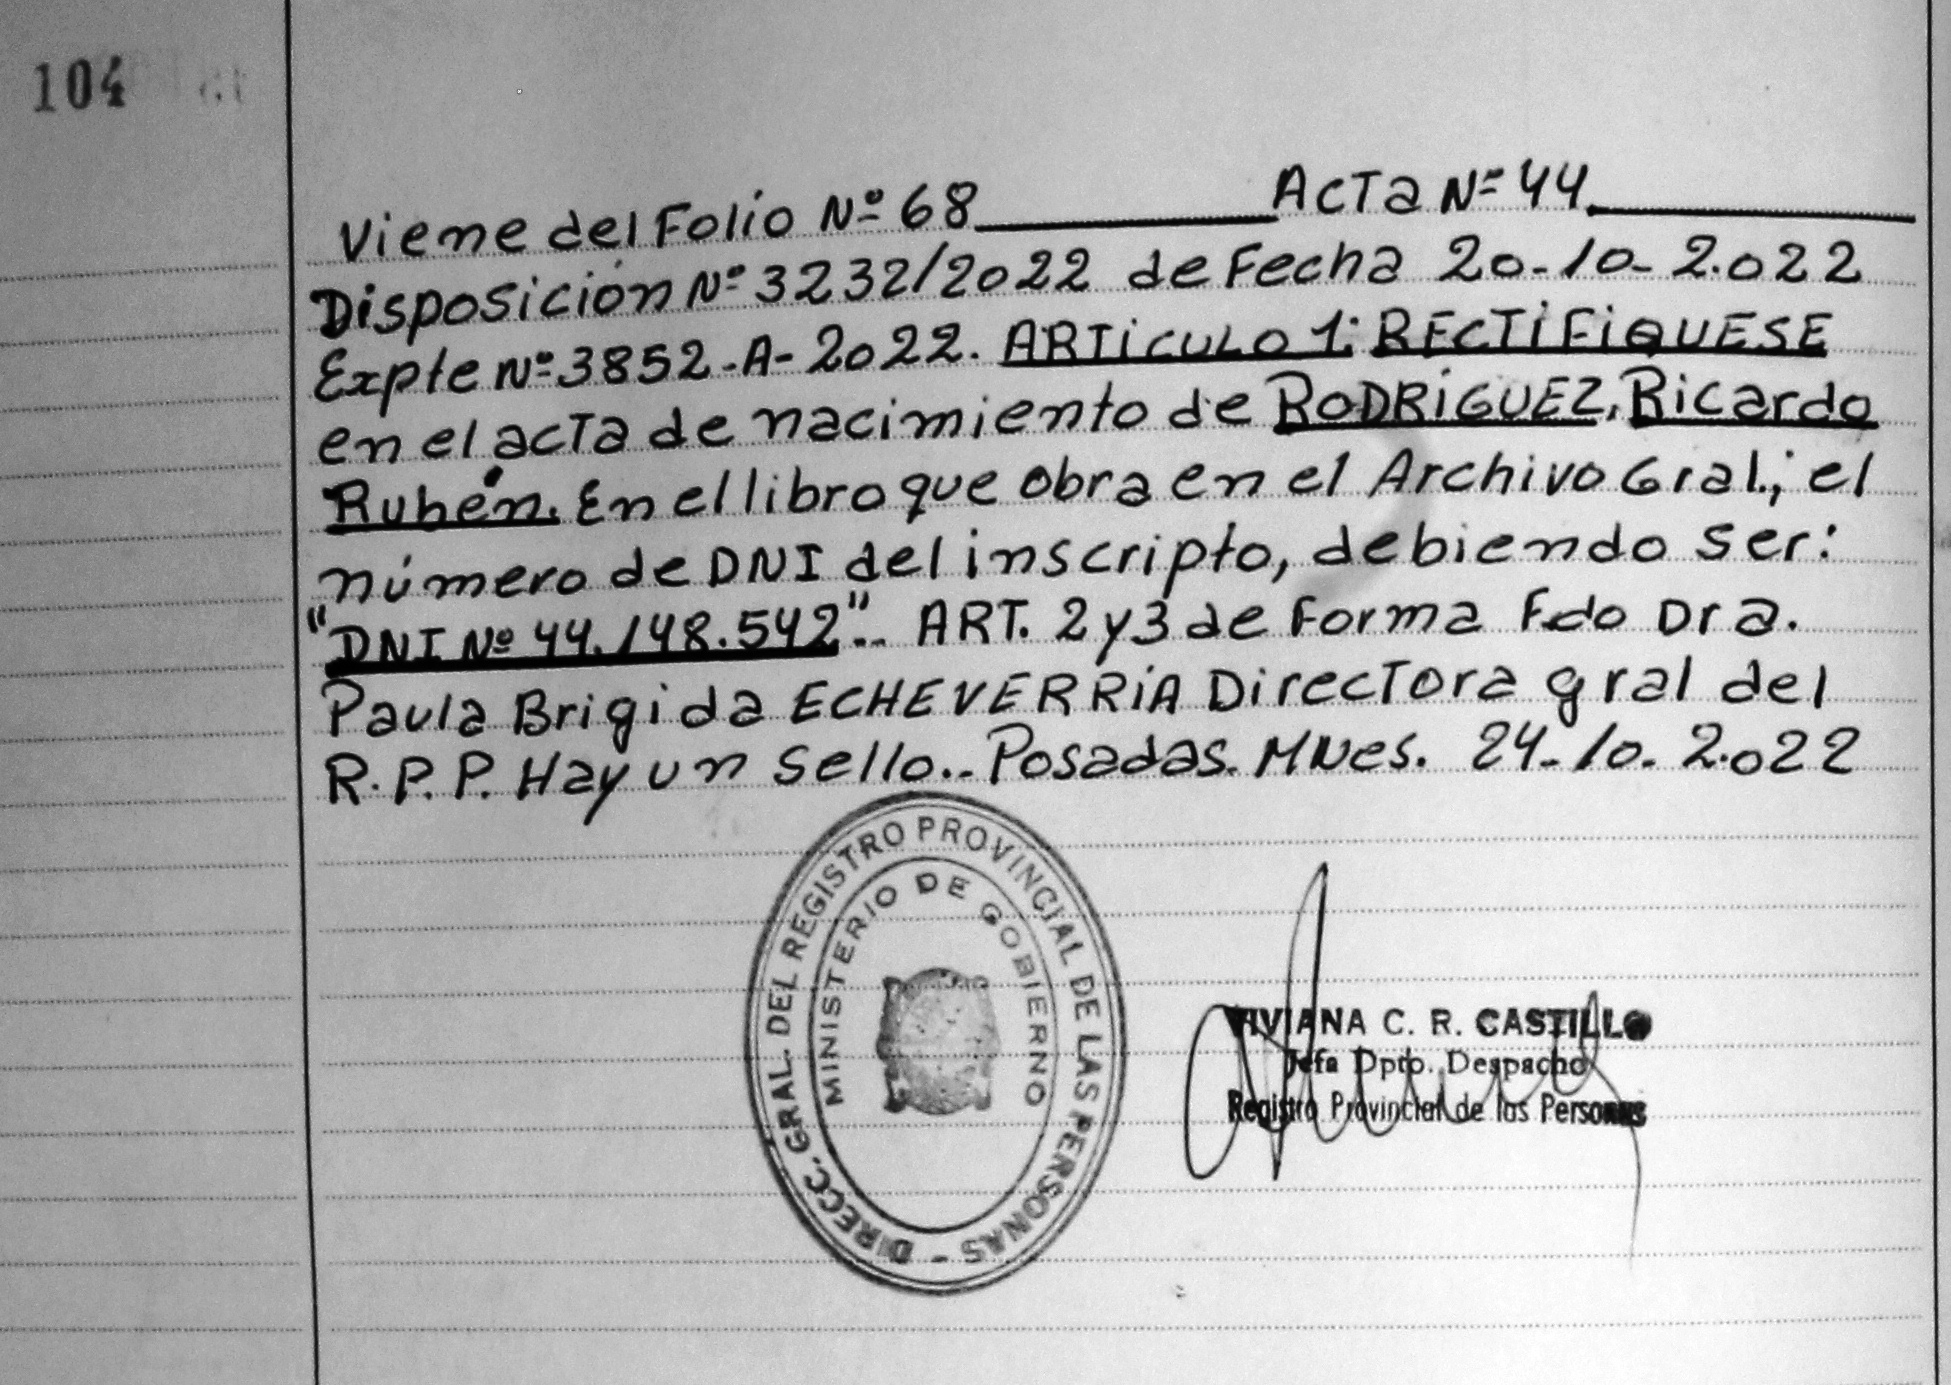 104
Viene del Folio Nº 68 Acta Nº 44
Disposición Nº 3232/2022 de Fecha 20-10-2.022
Expte Nº 3852-A-2022. ARTICULO 1: RECTIFIQUESE
en el acta de nacimiento de RODRIGUEZ, Ricardo
Rubén. En el libro que obra en el Archivo Gral.; el
número de DNI del inscripto, debiendo ser:
"DNI Nº 44.148.542".. ART. 2 y 3 de Forma Fdo Dra.
Paula Brigida ECHEVERRIA Directora gral del
R.P.P. Hay un sello.. Posadas. MNes. 24-10-2.022
DIRECC. GRAL. DEL REGISTRO PROVINCIAL DE LAS PERSONAS -
MINISTERIO DE GOBIERNO
VIVIANA C. R. CASTILLO
Jefa Dpto. Despacho
Registro Provincial de las Personas